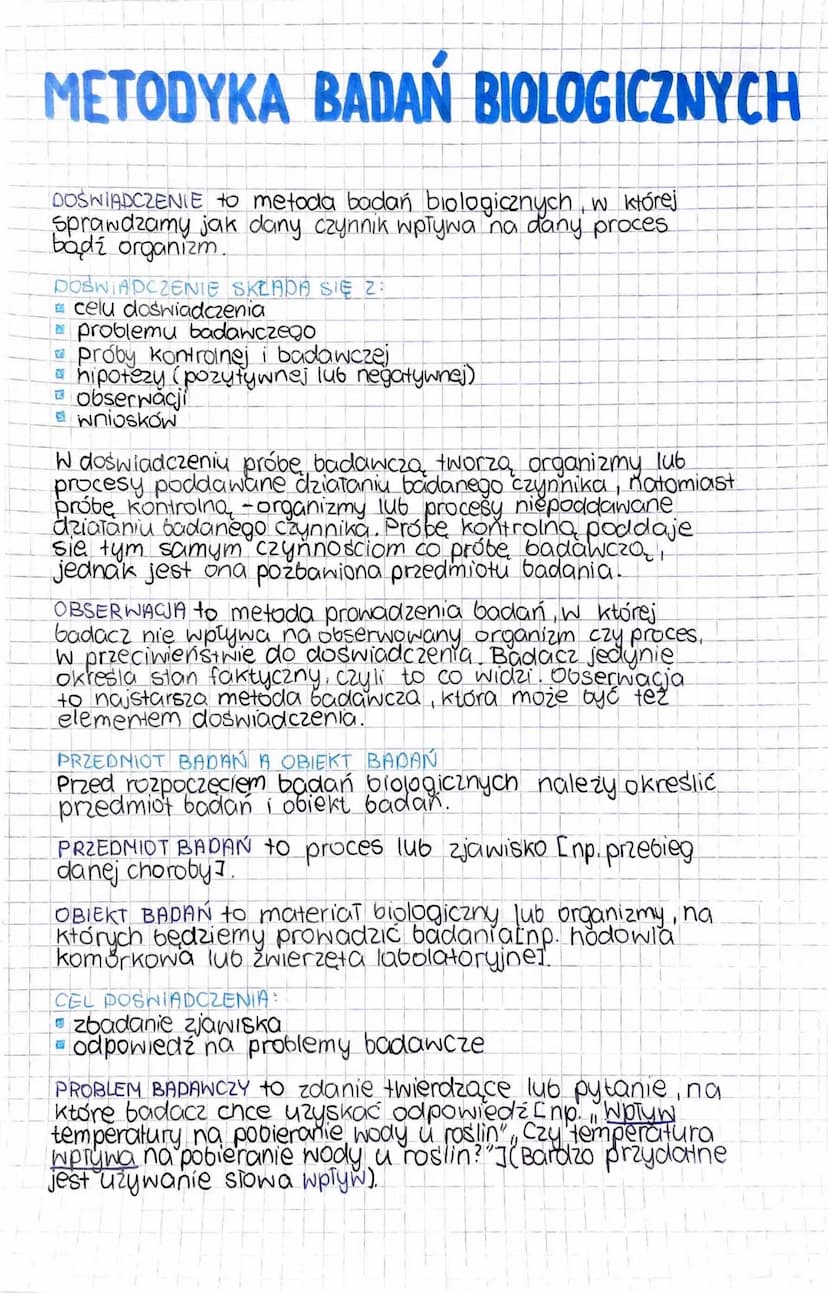 METODYKA BADAŃ BIOLOGICZNYCH
DOŚWIADCZENIE to metoda badań biologicznych, w której
sprawdzamy jak dany czynnik wpływa na dany proces
bądź organizm.
DOŚWIADCZENIE SKŁADA SIĘ Z:
celu doświadczenia
problemu badawczego
próby kontrolnej i badawczej
hipotezy (pozytywnej lub negatywnej)
obserwacji
wniosków
W doświadczeniu próbę badawczą tworzą organizmy lub
procesy poddawane działaniu badanego czynnika, natomiast
próbę kontrolną - organizmy lub procesy niepoddawane
działaniu badanego czynnika. Próbę kontrolną poddaje
się tym samym czynnościom co próbę badawczą,
jednak jest ona pozbawiona przedmiotu badania.
OBSERWACJA to metoda prowadzenia badań, w której
badacz nie wpływa na obserwowany organizm czy proces,
w przeciwieństwie do doświadczenia. Badacz jedynie
określa stan faktyczny, czyli to co widzi. Obserwacja
to najstarsza metoda badawcza, która może być też
elementem doświadczenia.
PRZEDMIOT BADAŃ A OBIEKT BADAŃ
Przed rozpoczęciem badań biologicznych należy określić
przedmiot badań i obiekt badań.
PRZEDMIOT BADAŃ to proces lub zjawisko [np. przebieg
danej choroby].
OBIEKT BADAŃ to materiał biologiczny lub organizmy, na
których będziemy prowadzić badania [np. hodowla
komórkowa lub zwierzęta labolatoryjne].
CEL DOŚWIADCZENIA:
zbadanie zjawiska
odpowiedź na problemy badawcze
PROBLEM BADAWCZY to zdanie twierdzące lub pytanie, na
które badacz chce uzyskać odpowiedź [np. „Wpływ
temperatury na pobieranie wody u roślin", „Czy temperatura
wpływa na pobieranie wody u roślin?"] (Bardzo przydatne
jest używanie słowa wpływ).